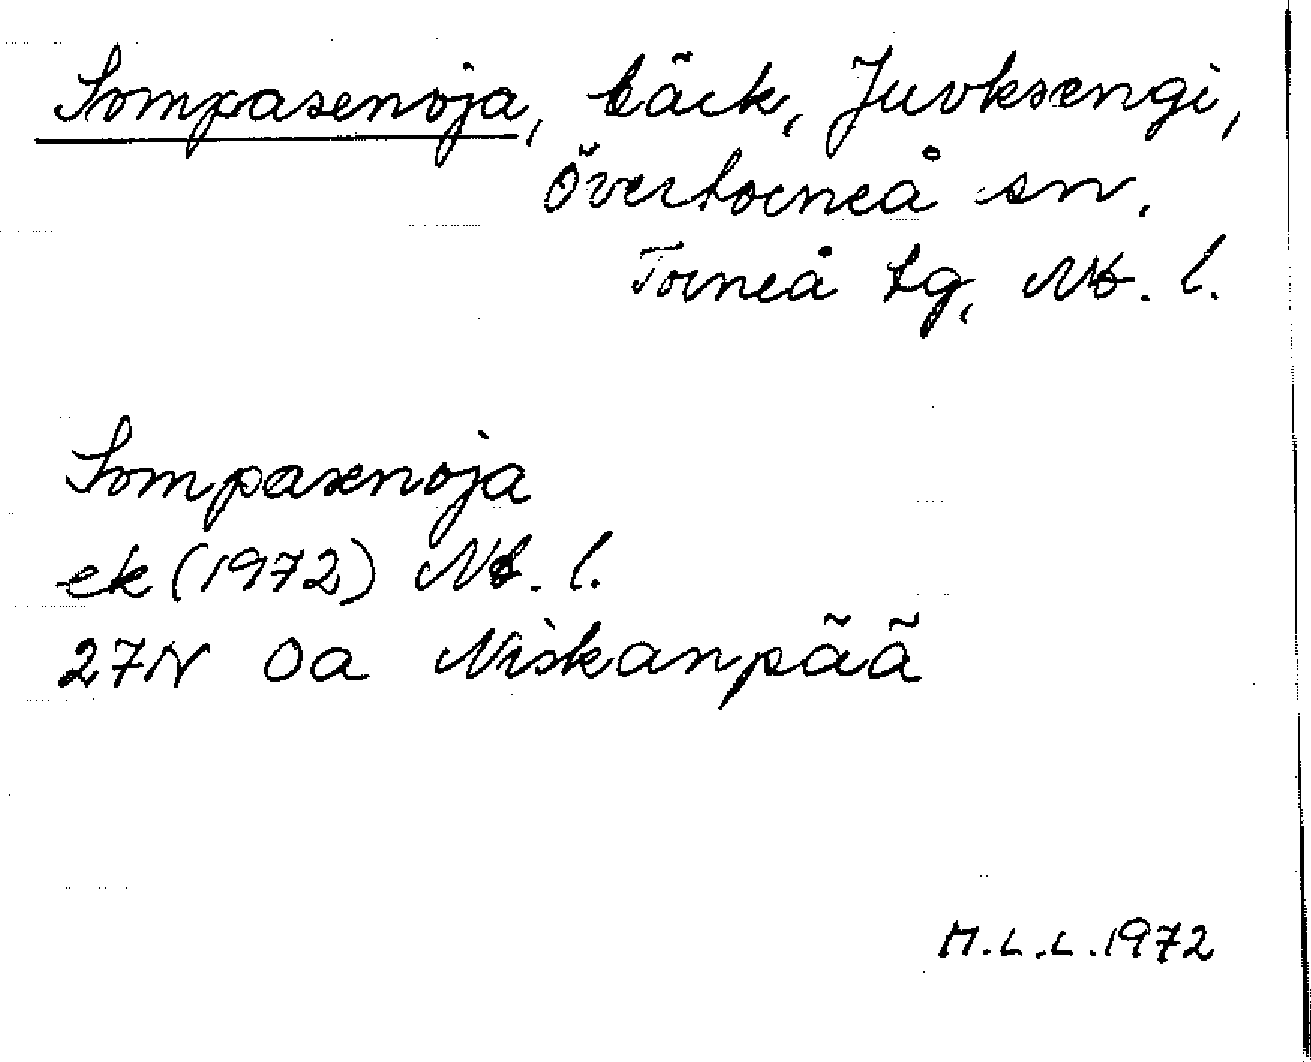 Sompasenoja, bäck, Juoksengi,
Övertorneå sn.
Torneå tg, Nb. l.
Sompasenoja
ek (1972) Nb. l.
27N 0a Niskanpää
M.L.L.1972